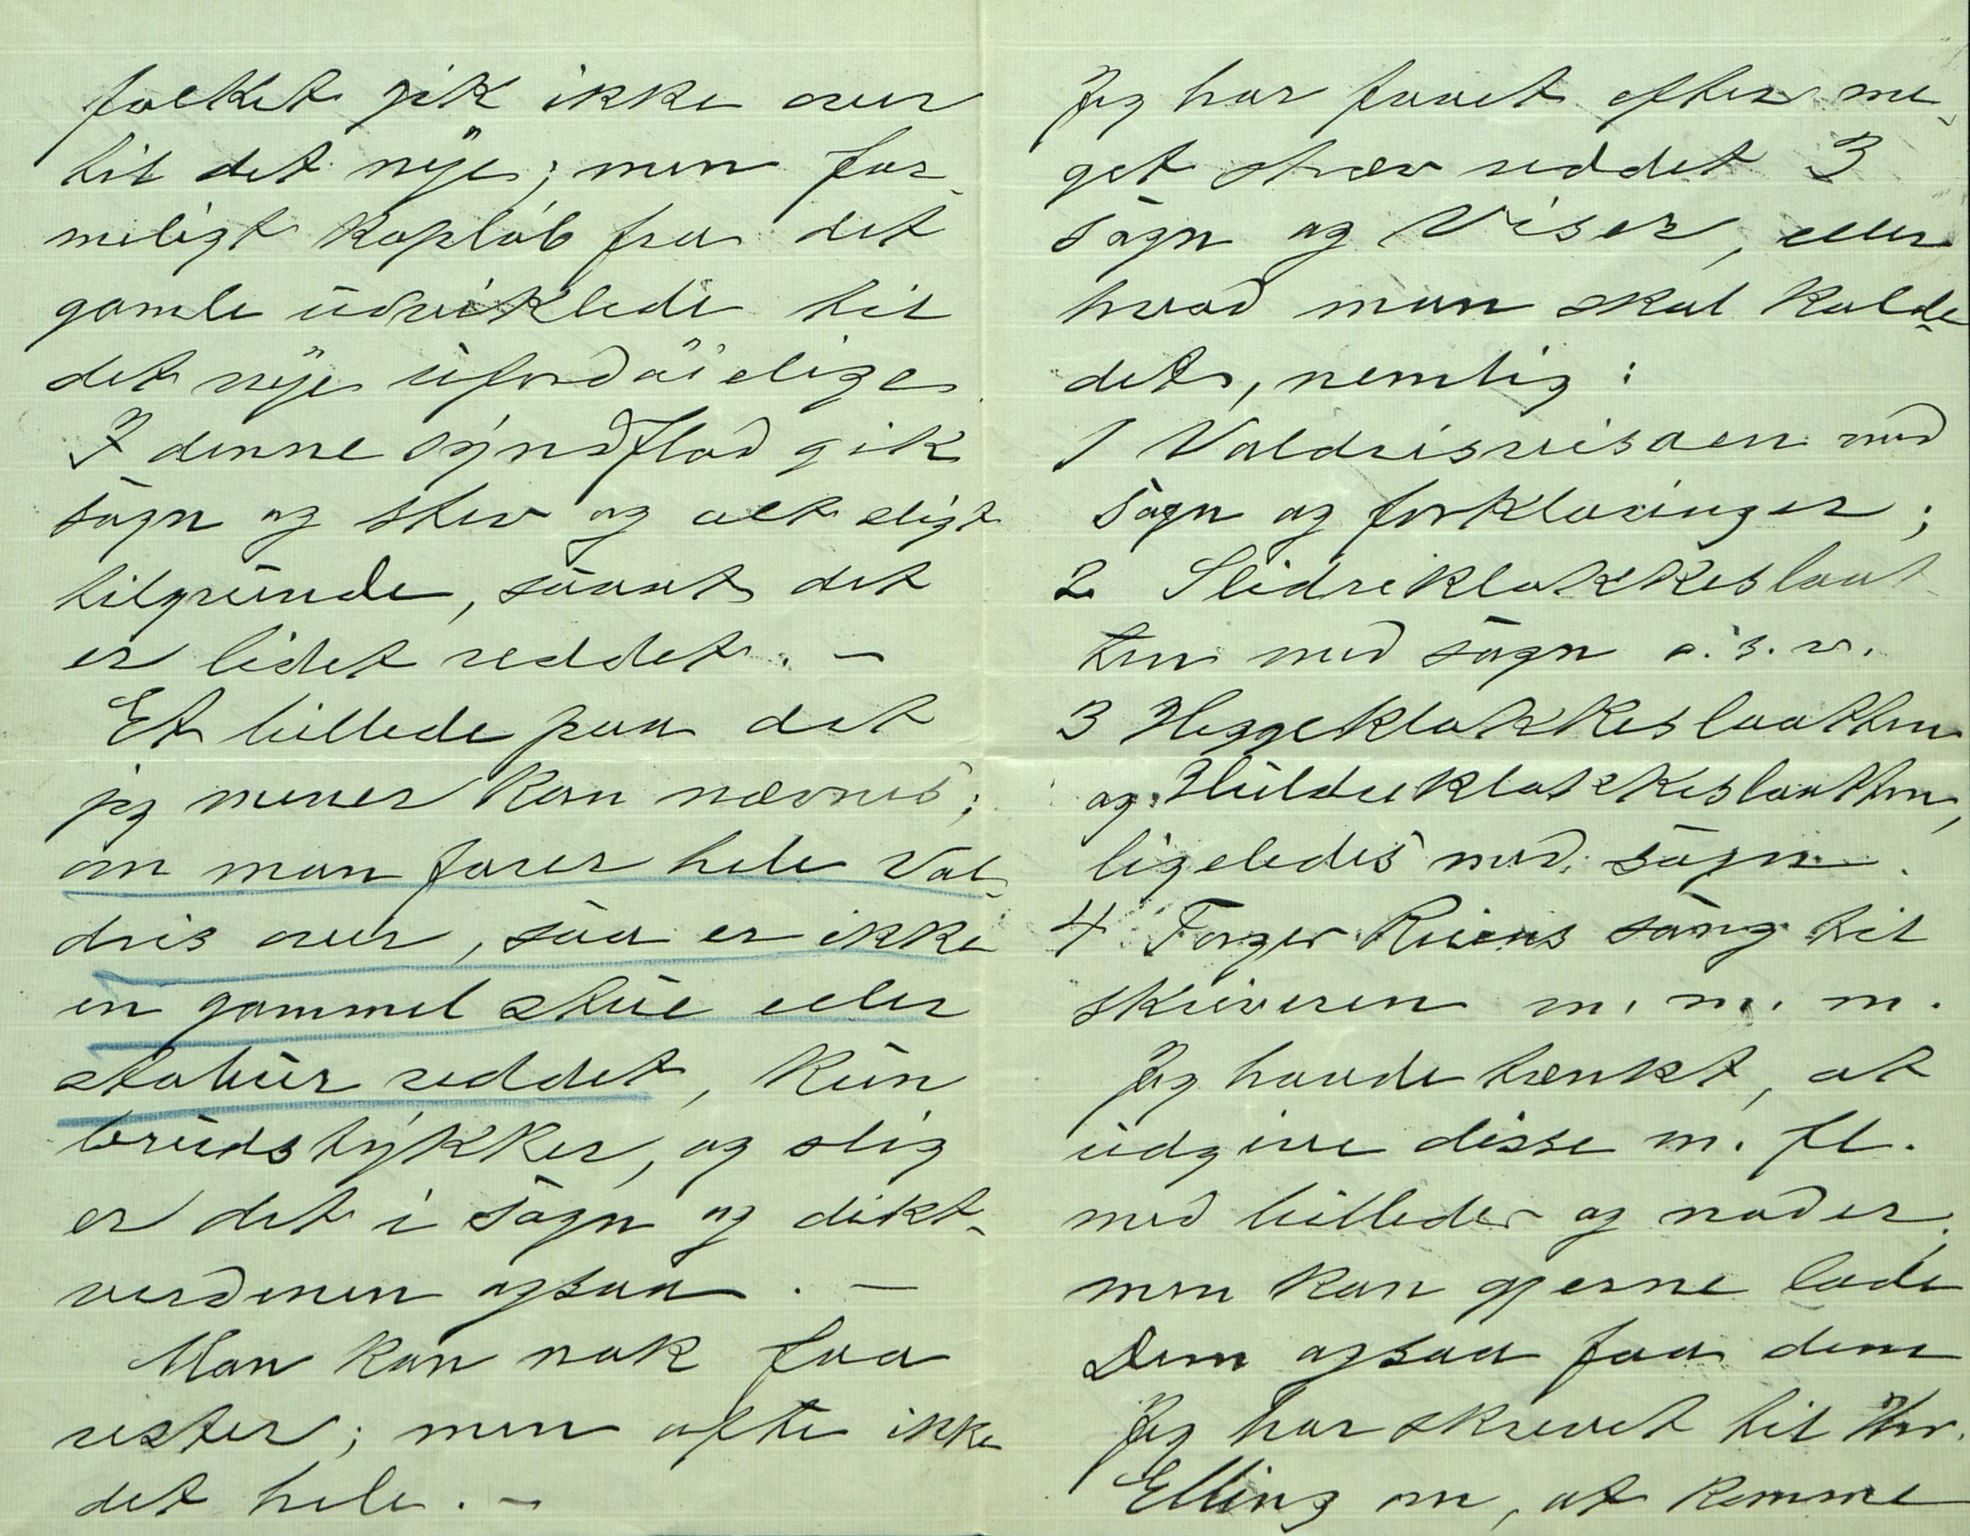 folket gik ikke over
til det nye; men for-
meligt kapløb fra det
gamle udviklede til
det nye ufordøielige.
I denne syndflod gik
sagn og stev og alt sligt
tilgrunde, saaat det
er lidet reddet. –
Et billede paa det
jeg mener kan nævnes;
om man farer hele Val-
dris over, saa er ikke
en gammel stue eller
stabur reddet, kun
brudstykker, og slig
er det i sagn og dikt-
verdenen ogsaa. –
Man kan nok faa
rester; men ofte ikke
det hele. –
Jeg har faaet efter me-
get stræv reddet 3
sagn og Viser, eller
hvad man skal kalde
det, nemlig:
1 Valdrisvisaen med
sagn og forklaringer;
2 Slidreklokkeslaat
ten med sagn o.s.v.
3 Heggeklokkeslaatten
og Huldreklokkeslaatten,
ligeledes med sagn.
4 sang til
skriveren m. m. m.
Jeg havde tænkt, at
udgive disse m. fl.
med billeder og noder,
men kan gjerne lade
Dem ogsaa faa dem
Jeg har skrevet til Hr.
Elling om, at komme